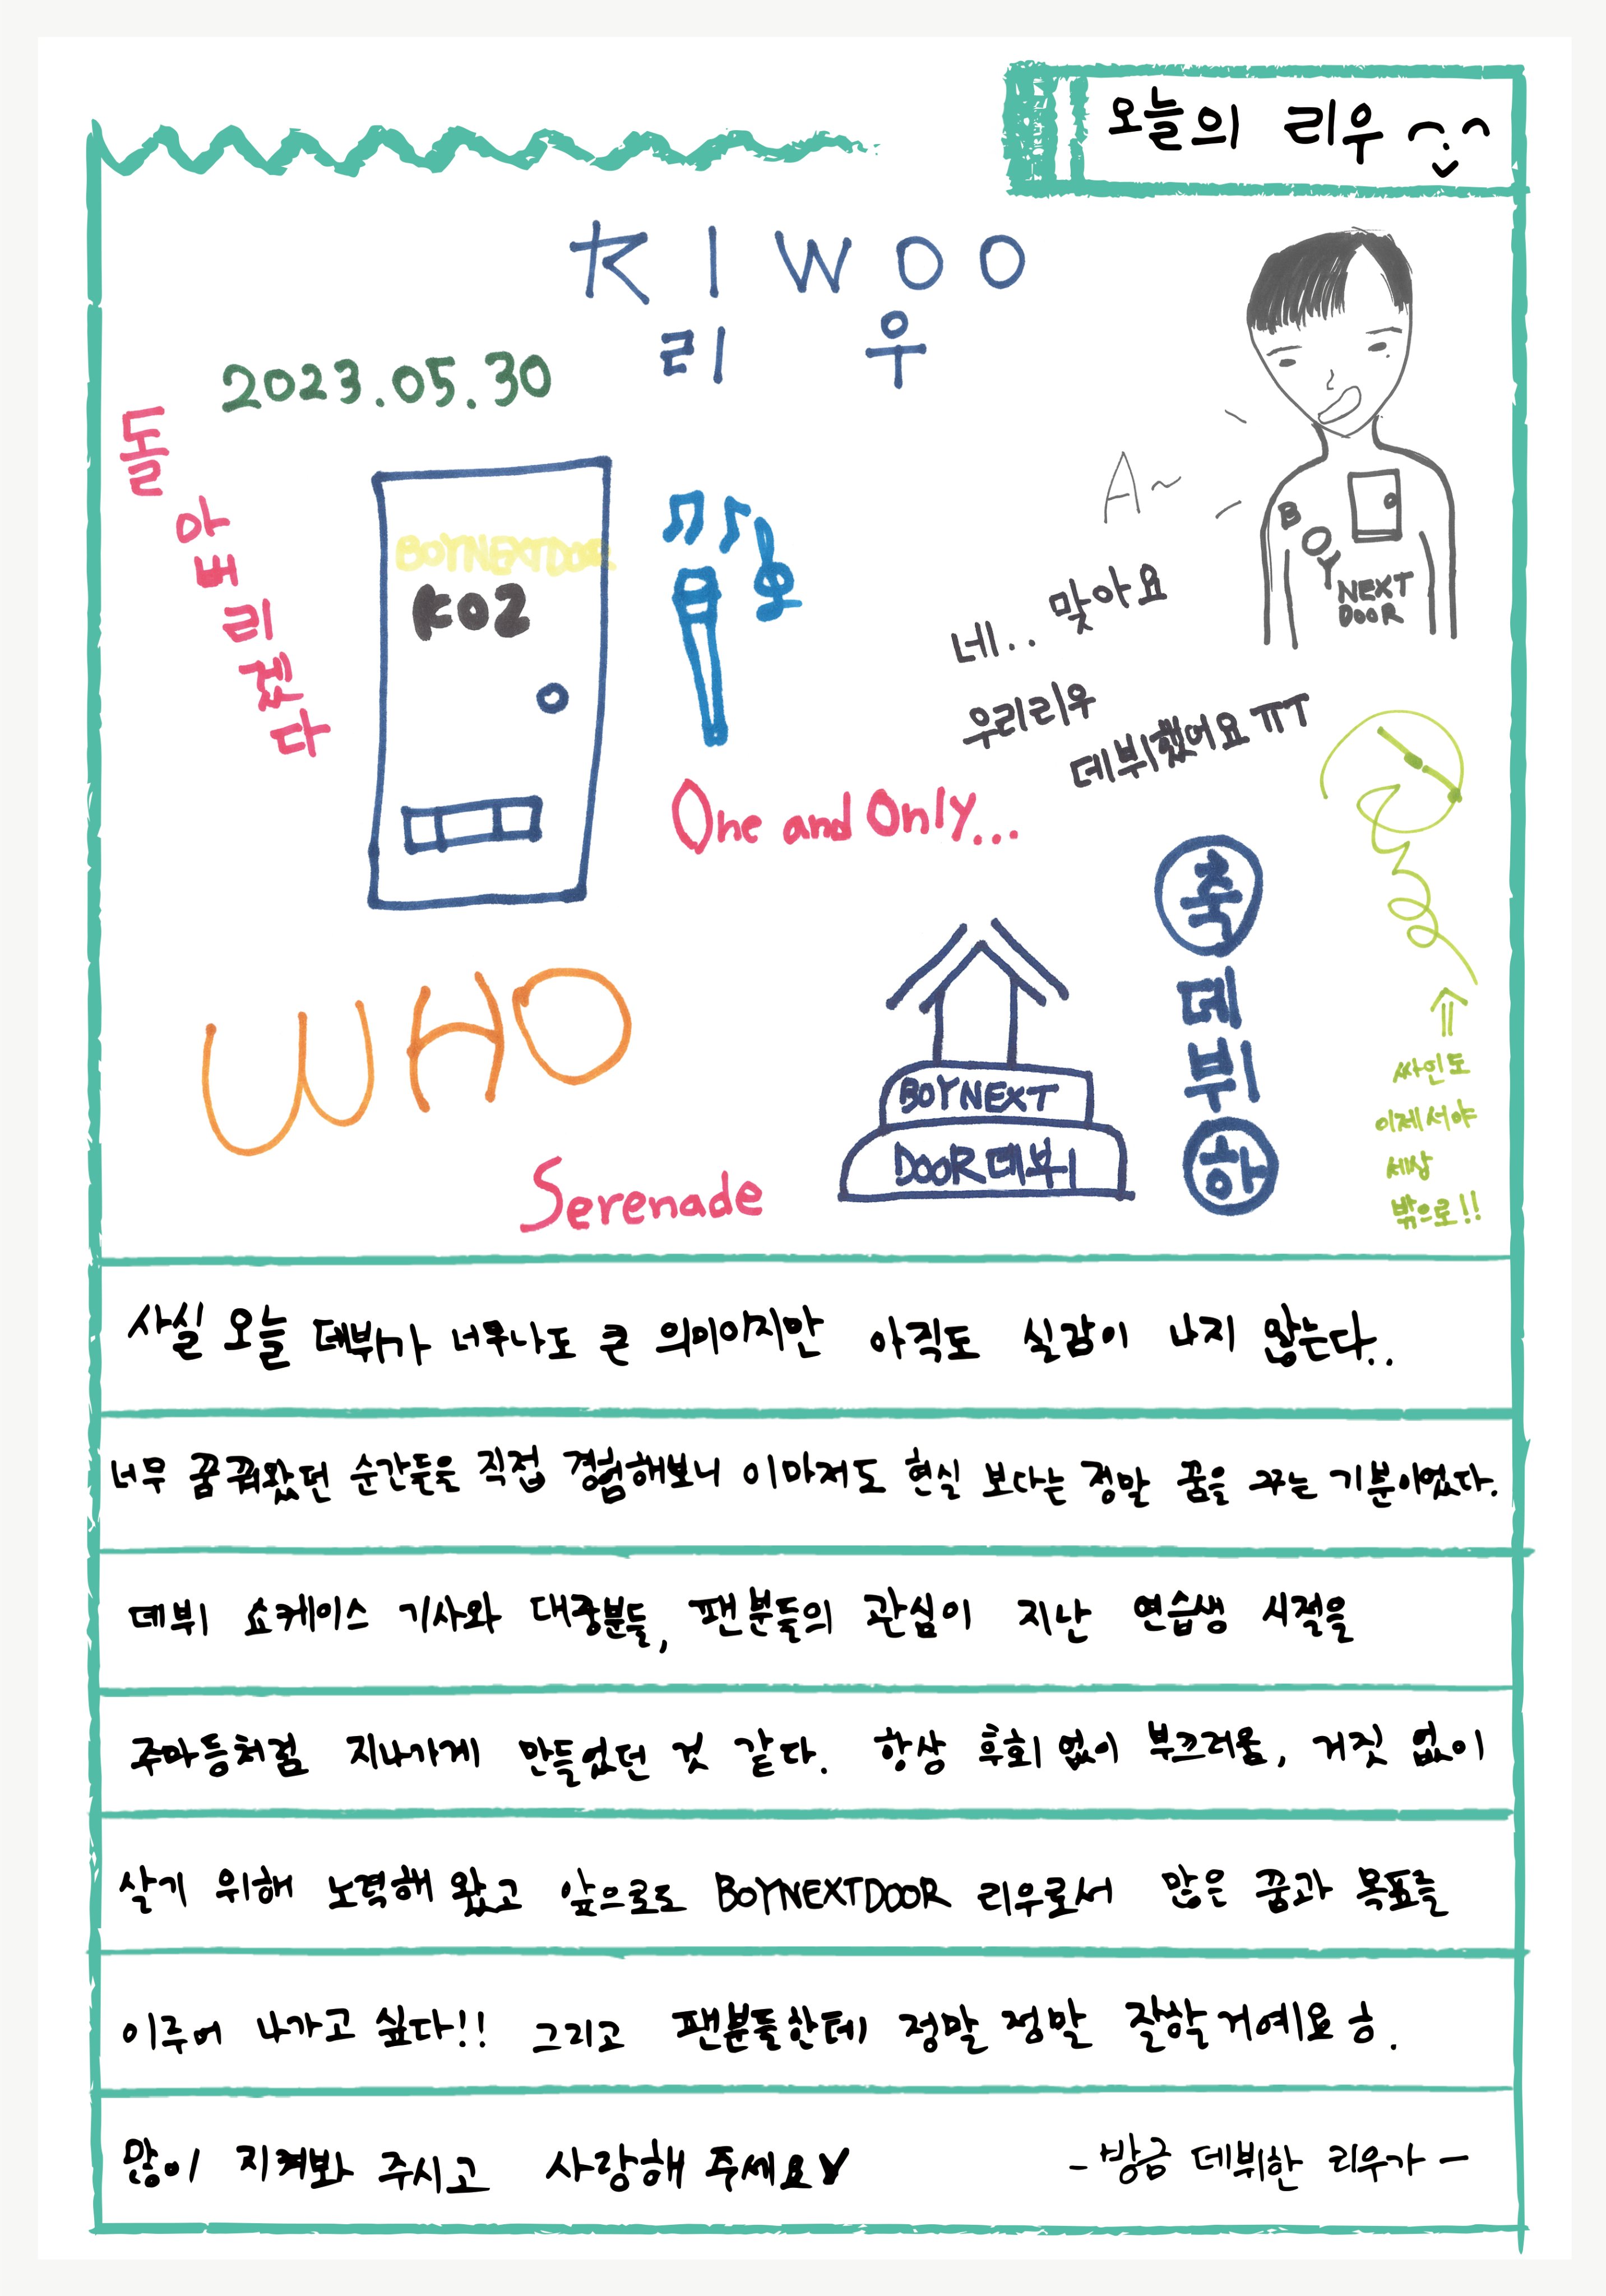 오늘의 리우
RIWOO
리우
2023.05.30
돌아버리겠다
BOYNEXTDOOR
KOZ
A~
BOY
NEXT
DOOR
네.. 맞아요
우리리우
데뷔했어요 ㅠㅠ
One and Only...
축
데
뷔
하
WHO
BOYNEXT
DOOR 데뷔
Serenade
싸인도
이제서야
세상
밖으로!!
사실 오늘 데뷔가 너무나도 큰 의미이지만 아직도 실감이 나지 않는다..
너무 꿈꿔왔던 순간들을 직접 경험해보니 이마저도 현실 보다는 정말 꿈을 꾸는 기분이었다.
데뷔 쇼케이스 기사와 대중분들, 팬분들의 관심이 지난 연습생 시절을
주마등처럼 지나가게 만들었던 것 같다. 항상 후회 없이 부끄러움, 거짓 없이
살기 위해 노력해 왔고 앞으로도 BOYNEXTDOOR 리우로서 많은 꿈과 목표를
이루어 나가고 싶다!! 그리고 팬분들한테 정말 정말 잘할거예요 ㅎ.
많이 지켜봐 주시고 사랑해 주세요♥ -방금 데뷔한 리우가-